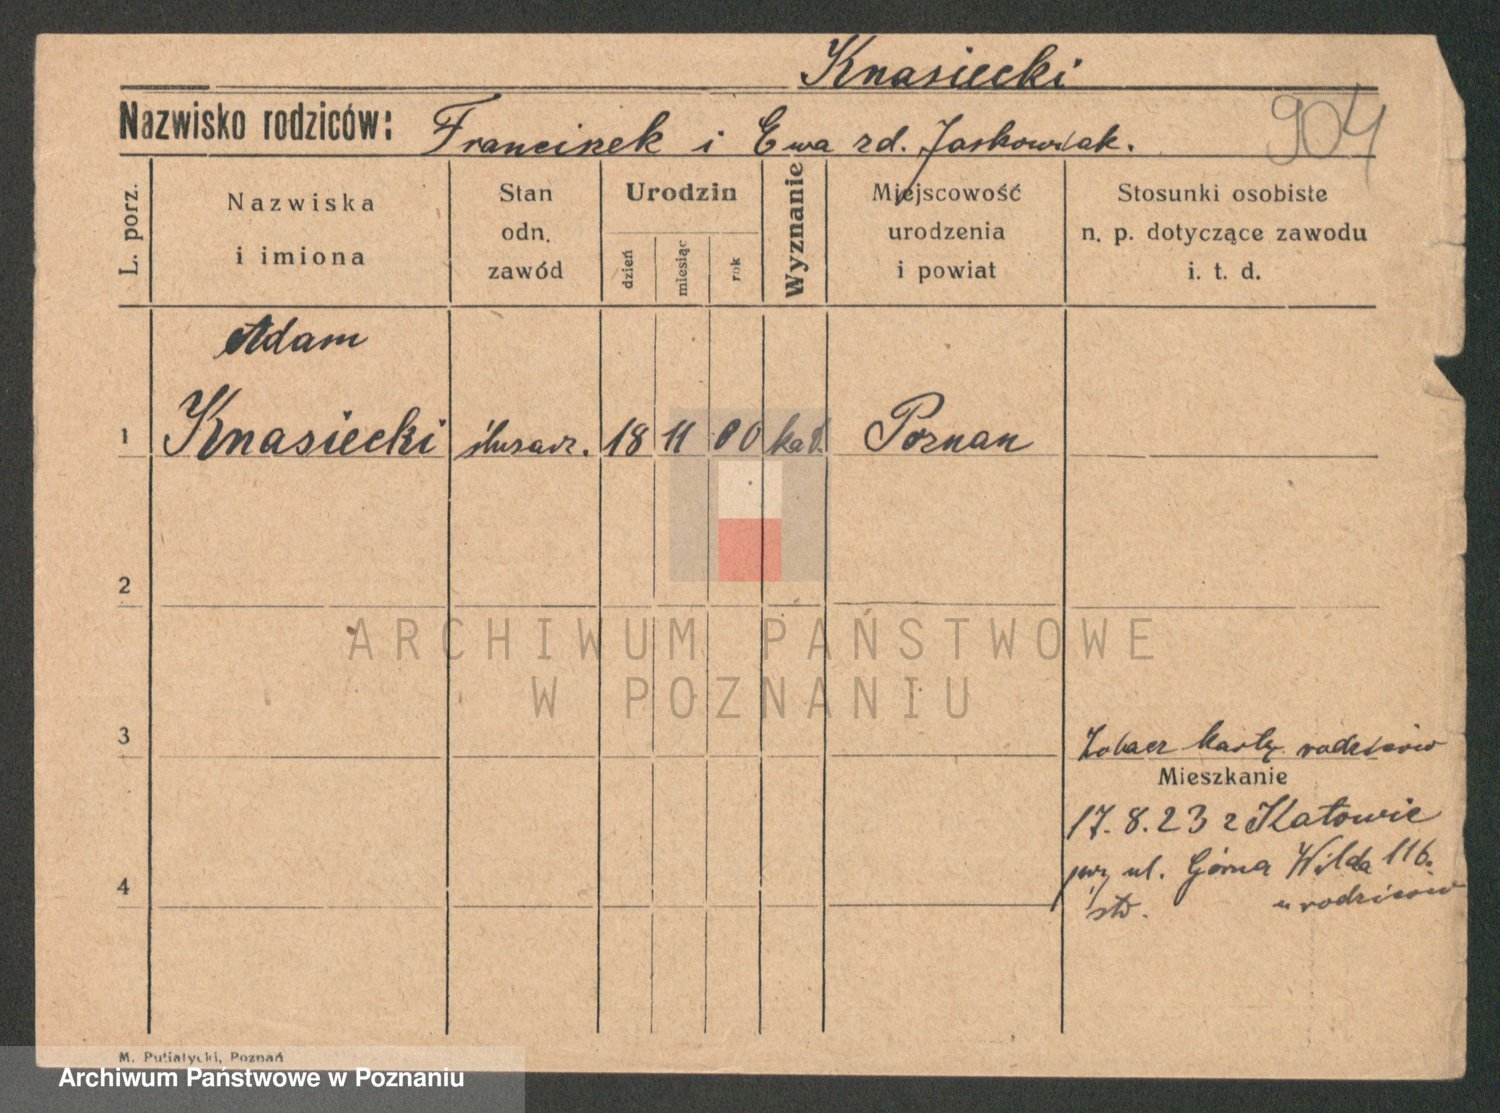 Knasiecki
Nazwisko rodziców: Franciszek i Ewa zd. Jaskowiak.
904
L. porz.
Nazwiska
i imiona
Stan
odn.
zawód
Urodzin
dzień
miesiąc
rok
Wyznanie
Miejscowość
urodzenia
i powiat
Stosunki osobiste
n. p. dotyczące zawodu
i. t. d.
Adam
1 Knasiecki ślusarz. 18 11 00 kat. Poznan
2
ARCHIWUM PAŃSTWOWE
W POZNANIU
3
Zobacz kartę rodziców
Mieszkanie
17.8.23 z Katowic
przy ul. Górna Wilda 116.
4
u rodziców
M. Putiatycki, Poznań
Archiwum Państwowe w Poznaniu